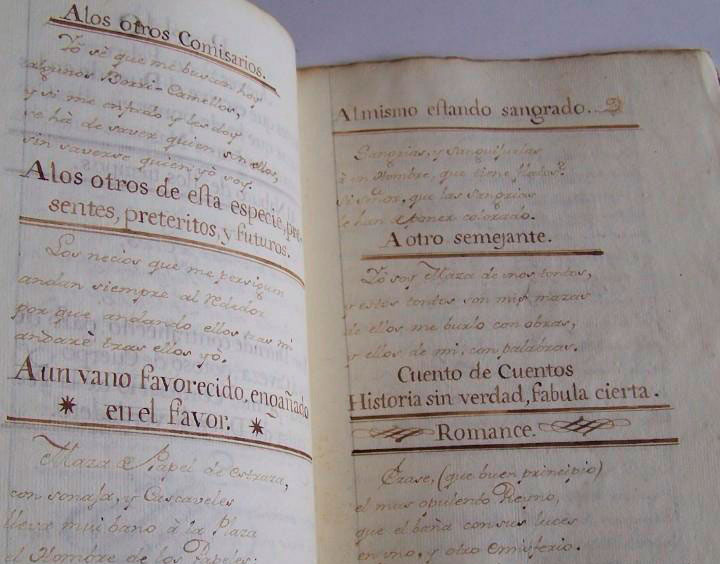 A los otros Comisarios.
Yo sè que me buscan hoy
algunos Borri-Camellos,
y si me enfado y les doy
se hà de saver quien son ellos,
sin saverse quien yo soy.
A los otros de esta especie, pre-
sentes, preteritos, y futuros.
Los necios que me persiguen
andan siempre al rededor
por que andando ellos tras mi
andarè tras ellos yò.
A un vano favorecido, engañado
en el favor.
Maza de Papel de estraza,
con sonaja, y Cascaveles
lleva mui bano à la Plaza
el Hombre de los Papeles:
Al mismo estando sangrado.
Sangrias, y sanguijuelas
à un Hombre, que tiene
si Señor, que las sangrias
le han de poner colorado.
A otro semejante.
Yò soy Maza de unos tontos,
y estos tontos son mis mazas
de ellos me burlo con obras,
y ellos de mi, con palabras.
Cuento de Cuentos
Historia sin verdad, fabula cierta.
Romance.
Erase, (que buen principio)
el mas opulento Reyno,
que el baña con sus luces
en uno, y otro emisferio.